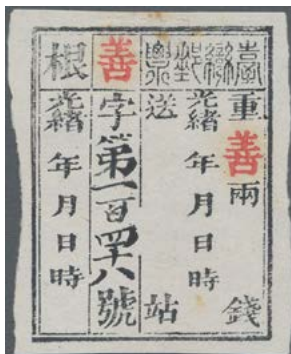 臺灣郵票
重善兩錢
光緒年月日時
送站
善
字第一百四十八號
根
光緒年月日時